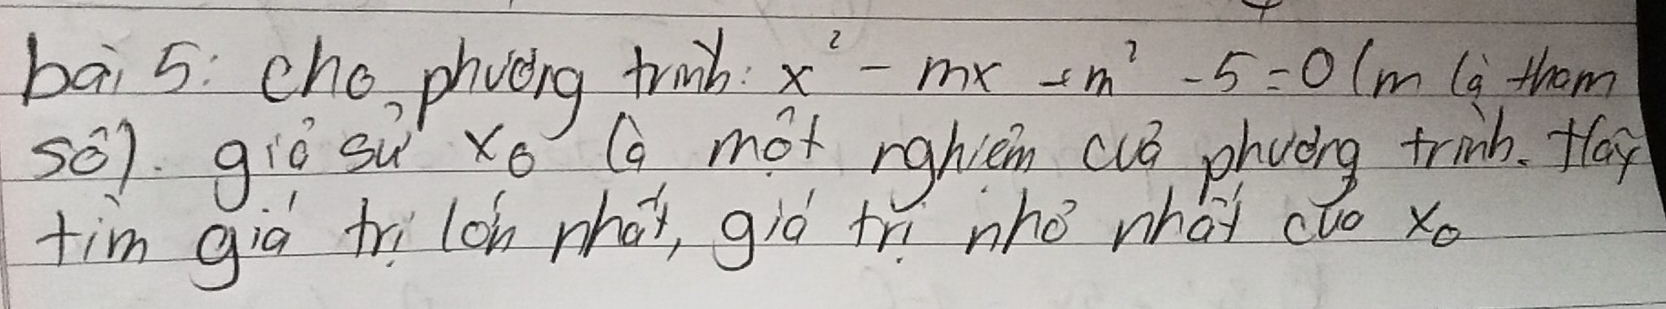 bài 5: cho phương trình: x² - mx + m² - 5 = 0 (m là tham
số). giả sử x₀ là một nghiệm của phương trình. Hãy
tìm giá trị lớn nhất, giá trị nhỏ nhất của x₀